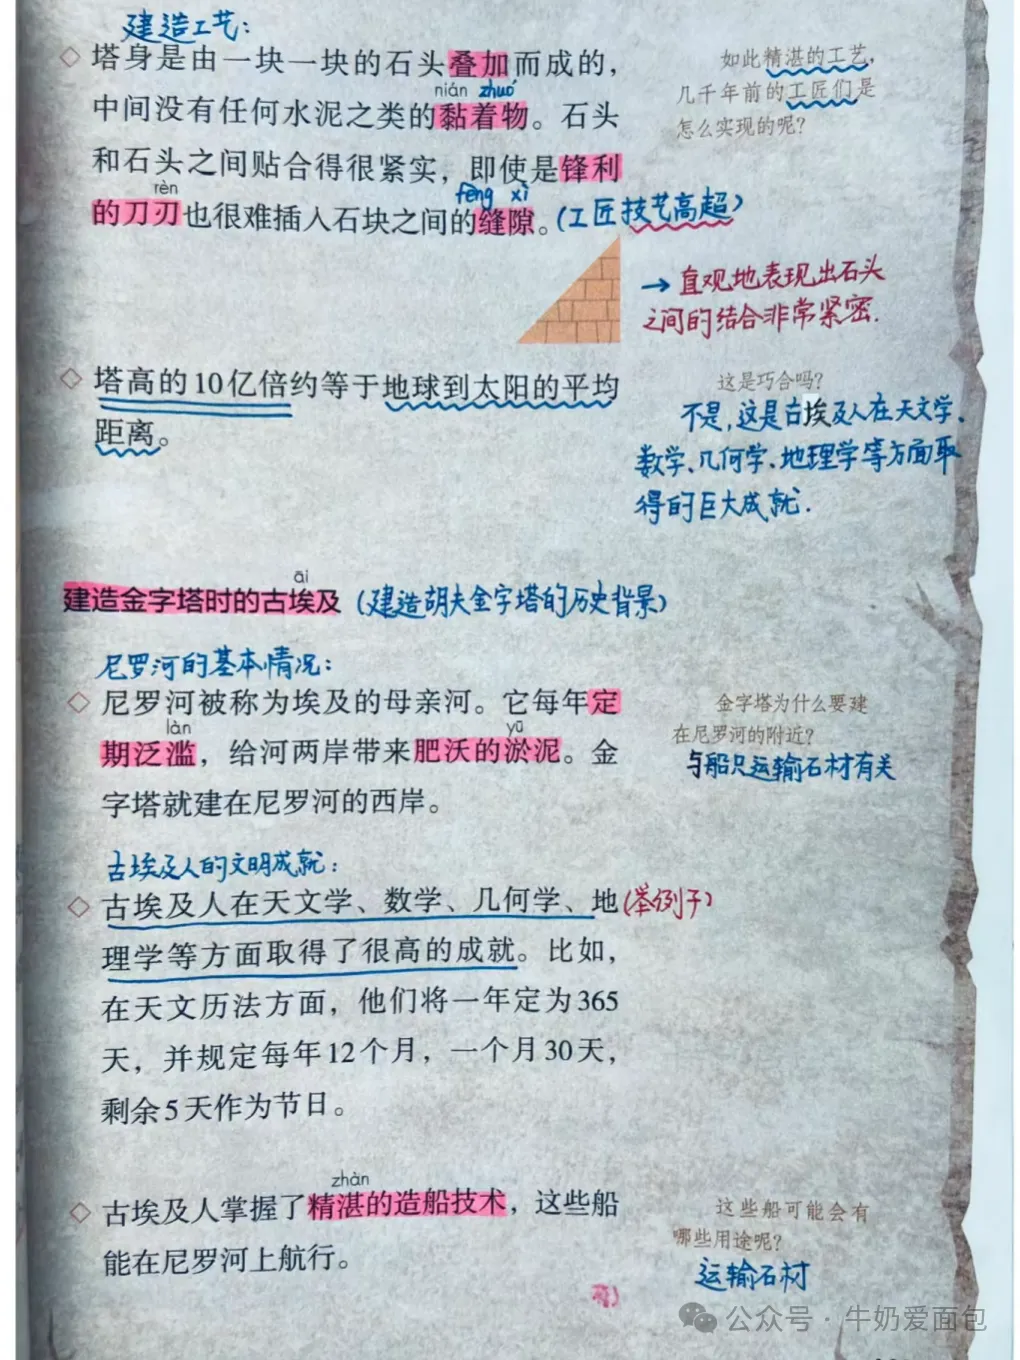 建造工艺:
◇ 塔身是由一块一块的石头叠加而成的,
如此精湛的工艺,
nián zhuó
几千年前的工匠们是
中间没有任何水泥之类的黏着物。石头
怎么实现的呢?
和石头之间贴合得很紧实，即使是锋利
rèn
fèng xì
的刀刃也很难插入石块之间的缝隙。(工匠技艺高超)
→ 直观地表现出石头
之间的结合非常紧密.
◇ 塔高的10亿倍约等于地球到太阳的平均
距离。
这是巧合吗?
不是,这是古埃及人在天文学、
数学、几何学、地理学等方面取
得的巨大成就.
āi
建造金字塔时的古埃及 (建造胡夫金字塔的历史背景)
尼罗河的基本情况:
◇ 尼罗河被称为埃及的母亲河。它每年定
làn
yū
期泛滥，给河两岸带来肥沃的淤泥。金
字塔就建在尼罗河的西岸。
金字塔为什么要建
在尼罗河的附近?
与船只运输石材有关
古埃及人的文明成就:
◇ 古埃及人在天文学、数学、几何学、地(举例子)
理学等方面取得了很高的成就。比如,
在天文历法方面，他们将一年定为365
天，并规定每年12个月，一个月30天,
剩余5天作为节日。
zhàn
◇ 古埃及人掌握了精湛的造船技术，这些船
能在尼罗河上航行。
这些船可能会有
哪些用途呢?
运输石材
公众号·牛奶爱面包